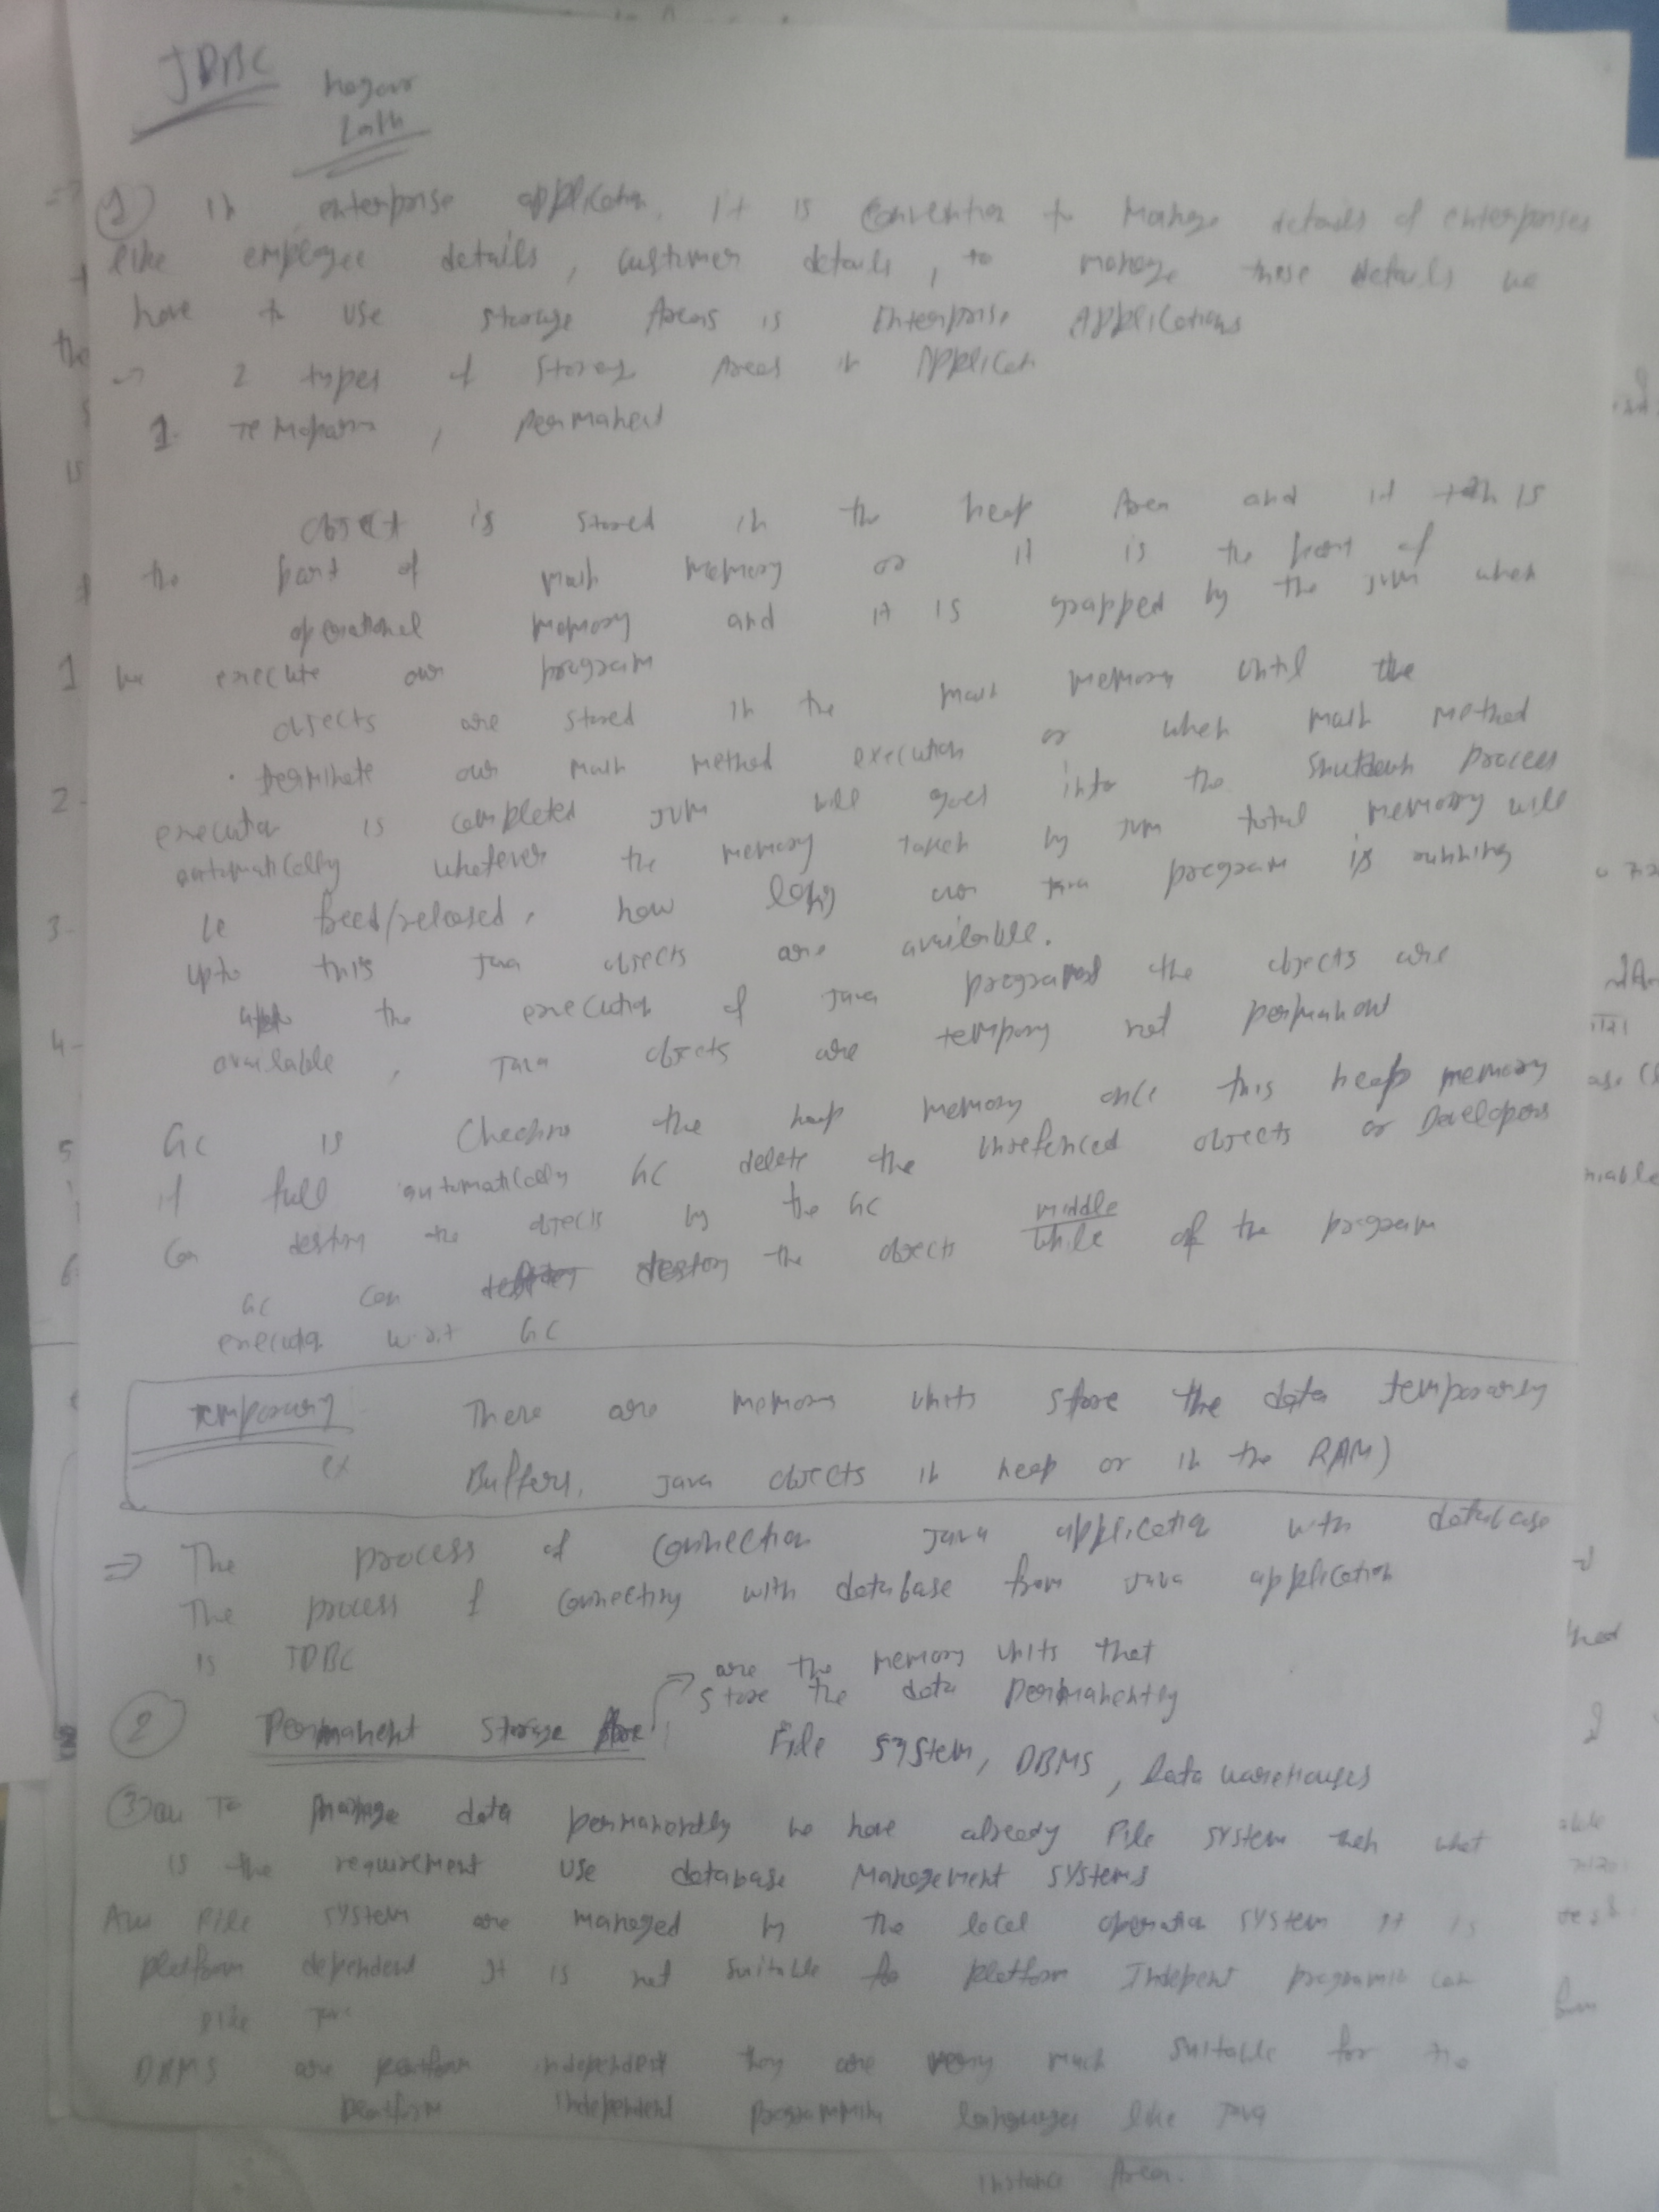 JDBC
1 In enterprise application, It is Convention to Manage details of enterprises
like employee details, customer details, to manage these details we
have to use storage Areas is Enterprise Applications
2 types of Storage Areas in Applicati
1. Temoparry, permanent
Object is stored in the heap Area and it is
the part of main memory or it is the part of
operational memory and it is grapped by the JVM when
we execute our program
objects are stored in the main memory until the
terminate our main method execution or when main method
execution is completed JVM will goes into the shutdown process
automatically whatever the memory taken by JVM total memory will
be freed/released, how long our Java program is running
upto this Java objects are available.
the execution of Java program the objects are
available, Java objects are tempory not permanent
GC is Checking the heap memory once this heap memory
if full automatically GC delete the unrefenced objects or Developers
Can destroy the objects by the GC
GC can destroy the objects middle while of the program
execution w.r.t GC
Temporary There are memory units store the data temporarily
ex Buffers, Java objects in heap or in the RAM)
⇒ The process of Connection Java application with database
The process of Connecting with database from Java application
is JDBC
→ are the memory units that
store the data permanently
2 Permanent Storage
File System, DBMS, Data warehouses
3 To manage data permanently we have already File system then what
is the requirement use database Management systems
File system are managed by the local operating system it is
platform dependent It is not suitable for platform Indepent
like
DBMS are platform independent they are very much suitable for the
platform independent programming languages like Java
instance Area.